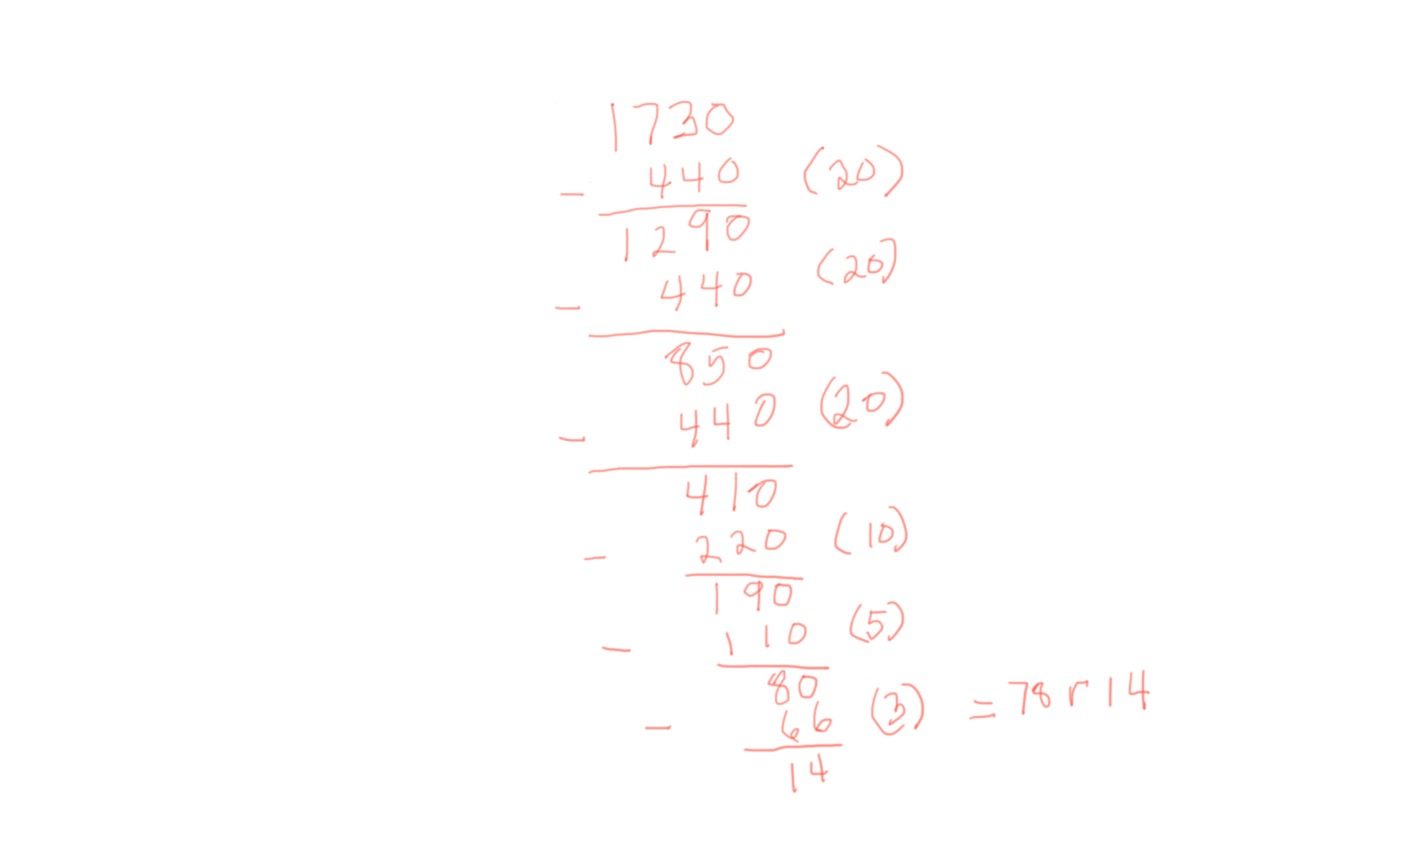 1730
- 440 (20)
1290
- 440 (20)
850
- 440 (20)
410
- 220 (10)
190
- 110 (5)
80
- 66 (3) = 78 r 14
14